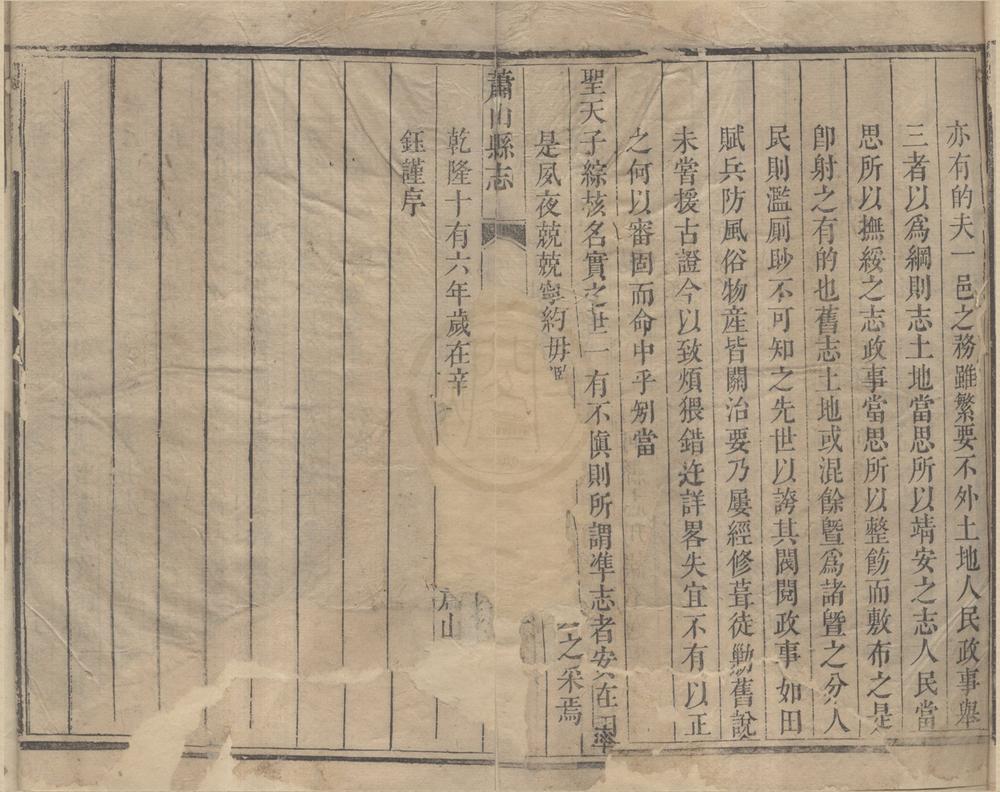 亦有的夫一邑之務雖繁要不外土地人民政事舉
三者以爲綱則志土地當思所以靖安之志人民當
思所以撫綏之志政事當思所以整飭而敷布之是
卽射之有的也舊志土地或混餘暨爲諸暨之分人
民則濫厠眇不可知之先世以誇其閥閱政事如田
賦兵防風俗物産皆關治要乃屢經修葺徒勦舊說
未嘗援古證今以致煩猥錯迕詳畧失宜不有以正
之何以審固而命中乎矧當
聖天子綜核名實之世一有不愼則所謂準志者安在
是夙夜兢兢寧約毋 之采焉
蕭山縣志
乾隆十有六年歲在辛 山
鈺謹序